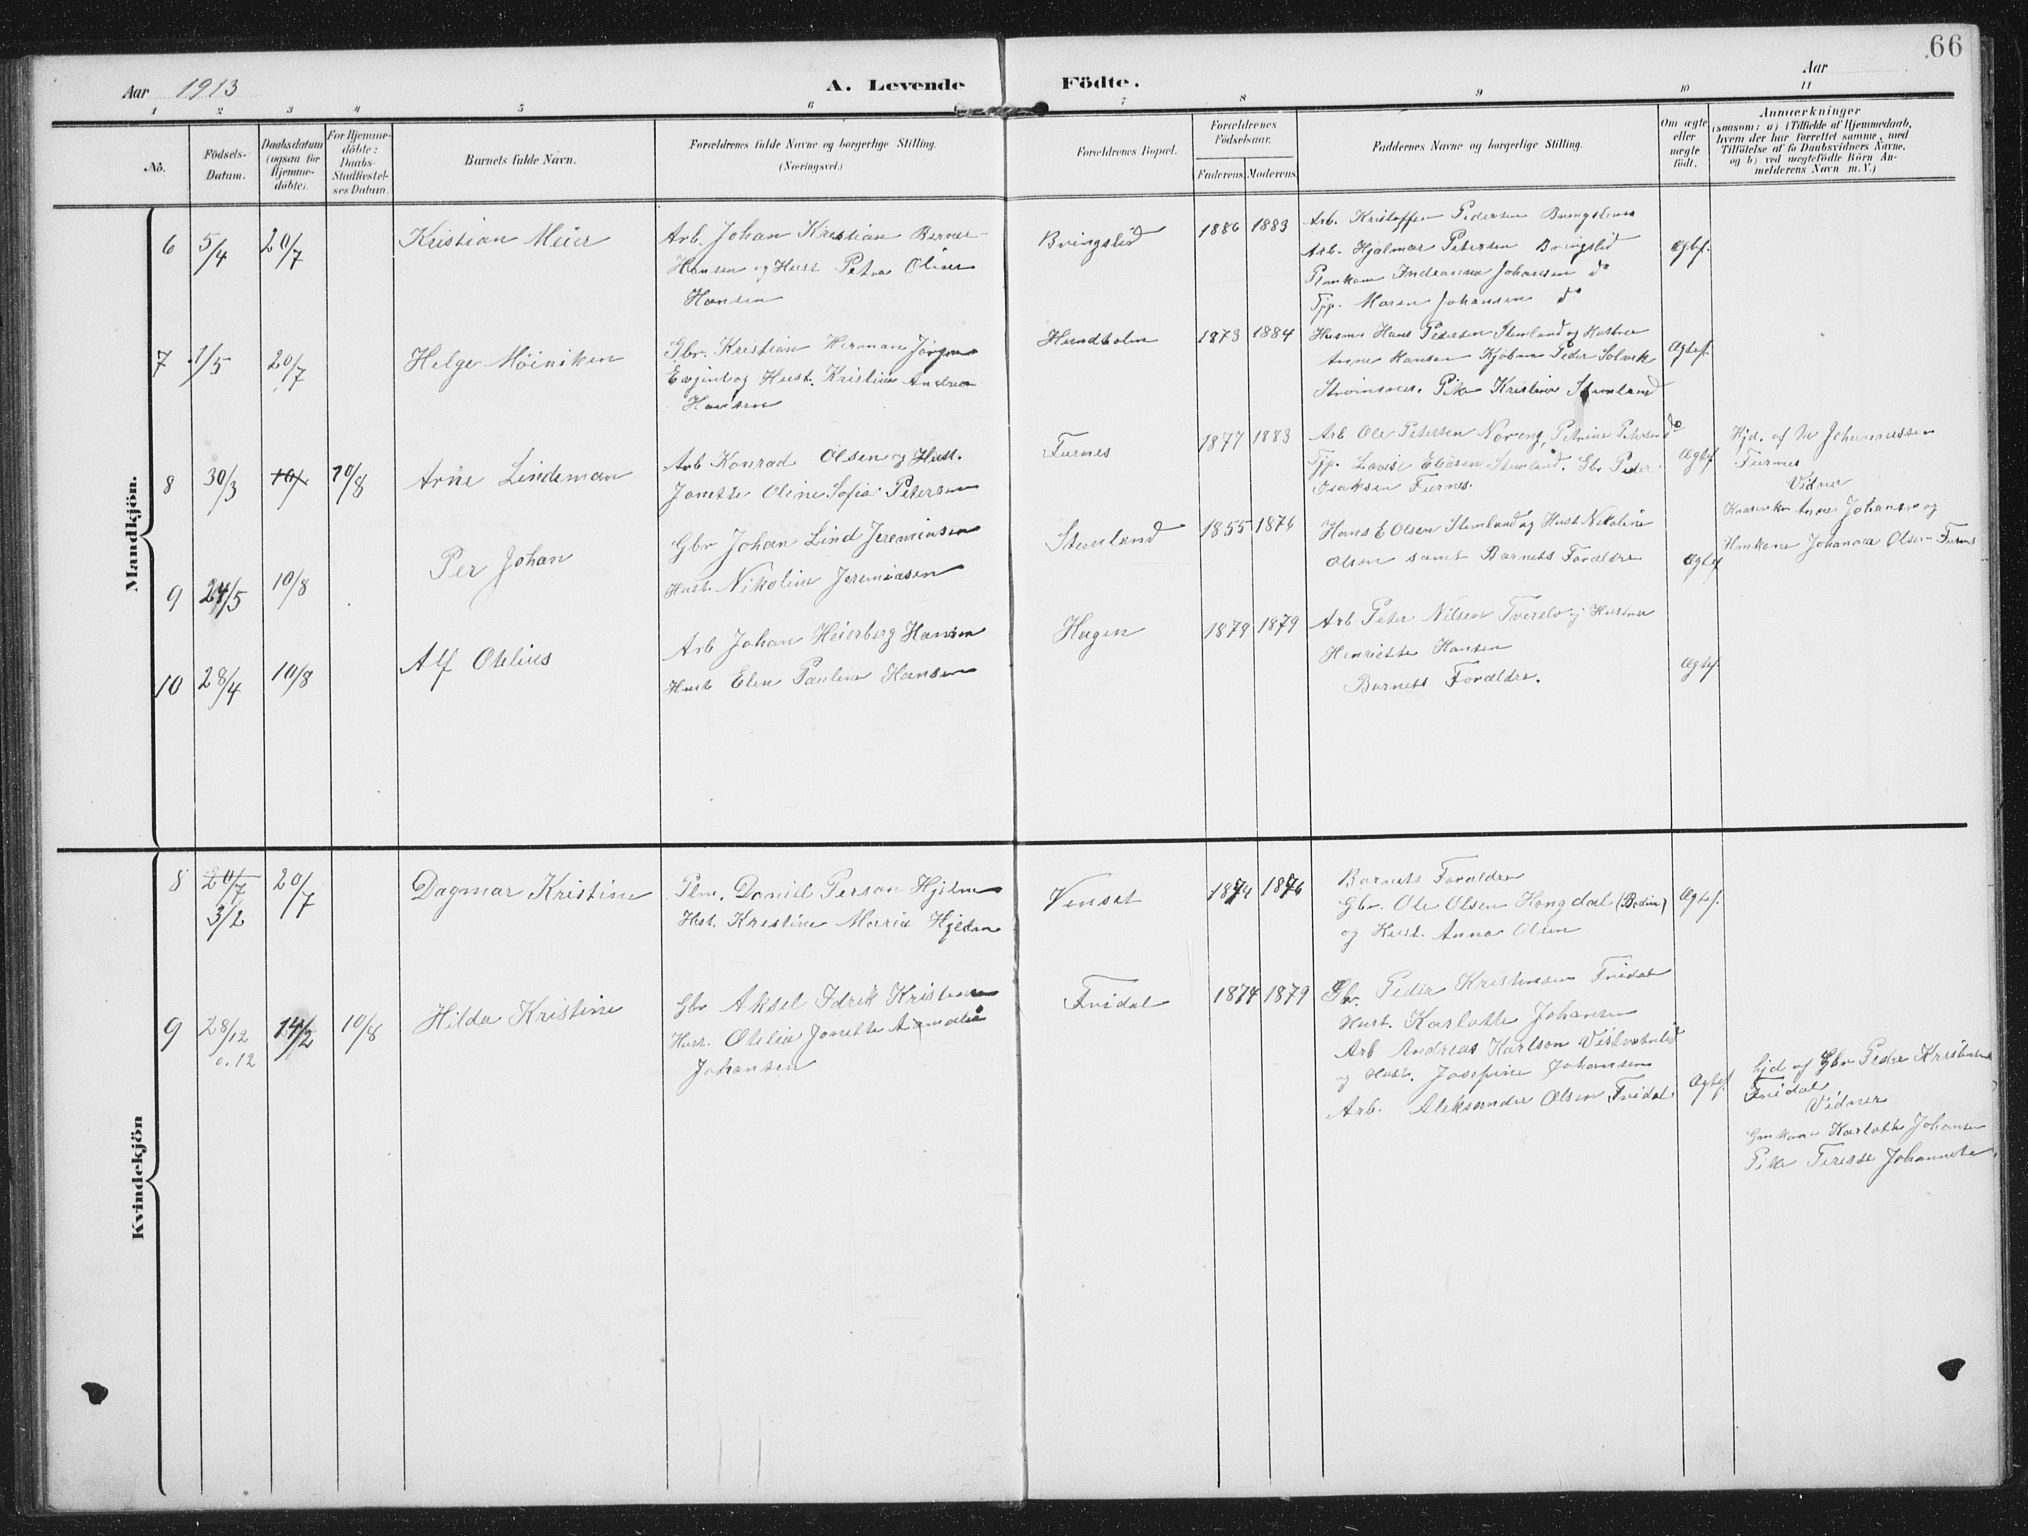 66
Aar 1913
A. Levende Födte.
Aar
1 2 3 4 5 6 7 8 9 10 11
No.
Födsels-
Datum.
Daabsdatum
(ogsaa for
Hjemme-
döbte).
For Hjemme-
döbte:
Daabs-
Stadfæstel-
ses Datum.
Barnets fulde Navn.
Forældrenes fulde Navne og borgerlige Stilling.
(Næringsvei.)
Forældrenes Bopæl.
Forældrenes
Födselsaar.
Faderens. Moderens.
Faddernes Navne og borgerlige Stilling.
Om ægte
eller
uægte
födt.
Anmærkninger
(saasom: a) i Tilfælde af Hjemmedaab,
hvem der har forrettet samme, med
Tilföielse af to Daabsvidners Navne,
og b) ved uægtefödte Börn An-
melderens Navn m. V.)
Mandkjön.
6 5/4 20/7 Kristian Meier
Arb. Johan Kristian Berner
Hansen og Hust. Petra Oline
Hansen
Bringslid 1886 1883
Arb. Kristoffer Pedersen
Arb. Hjalmar Petersen Bringslid
Indianna Johansen do
Tjp. Maren Johansen do
Ægtef.
7 1/5 20/7 Helge Möiniken
Gbr. Kristian Herman Jörgen
og Hust. Kristine Andrea
Hansen
Hundholm 1873 1884
Husm Hans Petersen Stemland og Hustru
Anne Hansen Kjöbm Peder Solvik
Strömsnes. Pike Kristine Stemland
Ægtef.
8 30/3 10/ 10/8 Arne Lindeman
Arb Konrad Olsen og Hust.
Jonette Oline Sofie Petersen
Furnes 1877 1883
Arb Ole Petersen Noreng, Petrine Petersen do
Tjp. Lovise Stemland. Gbr Peder
Isaksen Furnes.
Ægtef
Hjd. af Johannessen
Furnes
Vidner
Anne Johansen og
Hmkone Johanna Olsen Furnes
9 24/5 10/8 Per Johan
Gbr Johan Lind Jeremiasen
Hust. Nikoline Jeremiasen
Stemland 1855 1876
Hans E Olsen Stemland og Hust Nikoline
Olsen samt Barnets Forældre
Ægtef
10 28/4 10/8 Alf Otelius
Arb Johan Heierberg Hansen
Hust Elen Pauline Hansen
Hagen 1879 1879
Arb Peter Nilsen Tverelv og Hustru
Henriette Hansen
Barnets Forældre.
Ægtef.
Kvindekjön
8 20/7 20/7 Dagmar Kristine
3/2
Plm. Daniel Person
Hst. Kristine Marie
Venset 1874 1876
Barnets Forældre
Gbr. Ole Olsen Hongdal (Bodin)
og Hust. Anna Olsen
Ægtef.
9 28/12 14/2 10/8 Hilda Kristine
o. 12
Gbr Aksel Idrik Kristensen
Hust. Otelia Jonette Amalia
Johansen
Fridal 1874 1879
Gbr. Peder Kristensen Fridal
Hust. Karlotte Johansen
Arb Andreas Karlson Vestvatnlid
og Hust. Josefine Johansen
Arb. Aleksander Olsen Fridal
Ægtef.
Hjd af Gbr Peder Kristensen
Fridal
Vidner
Gmkone Karlotte Johansen
Pike Terese